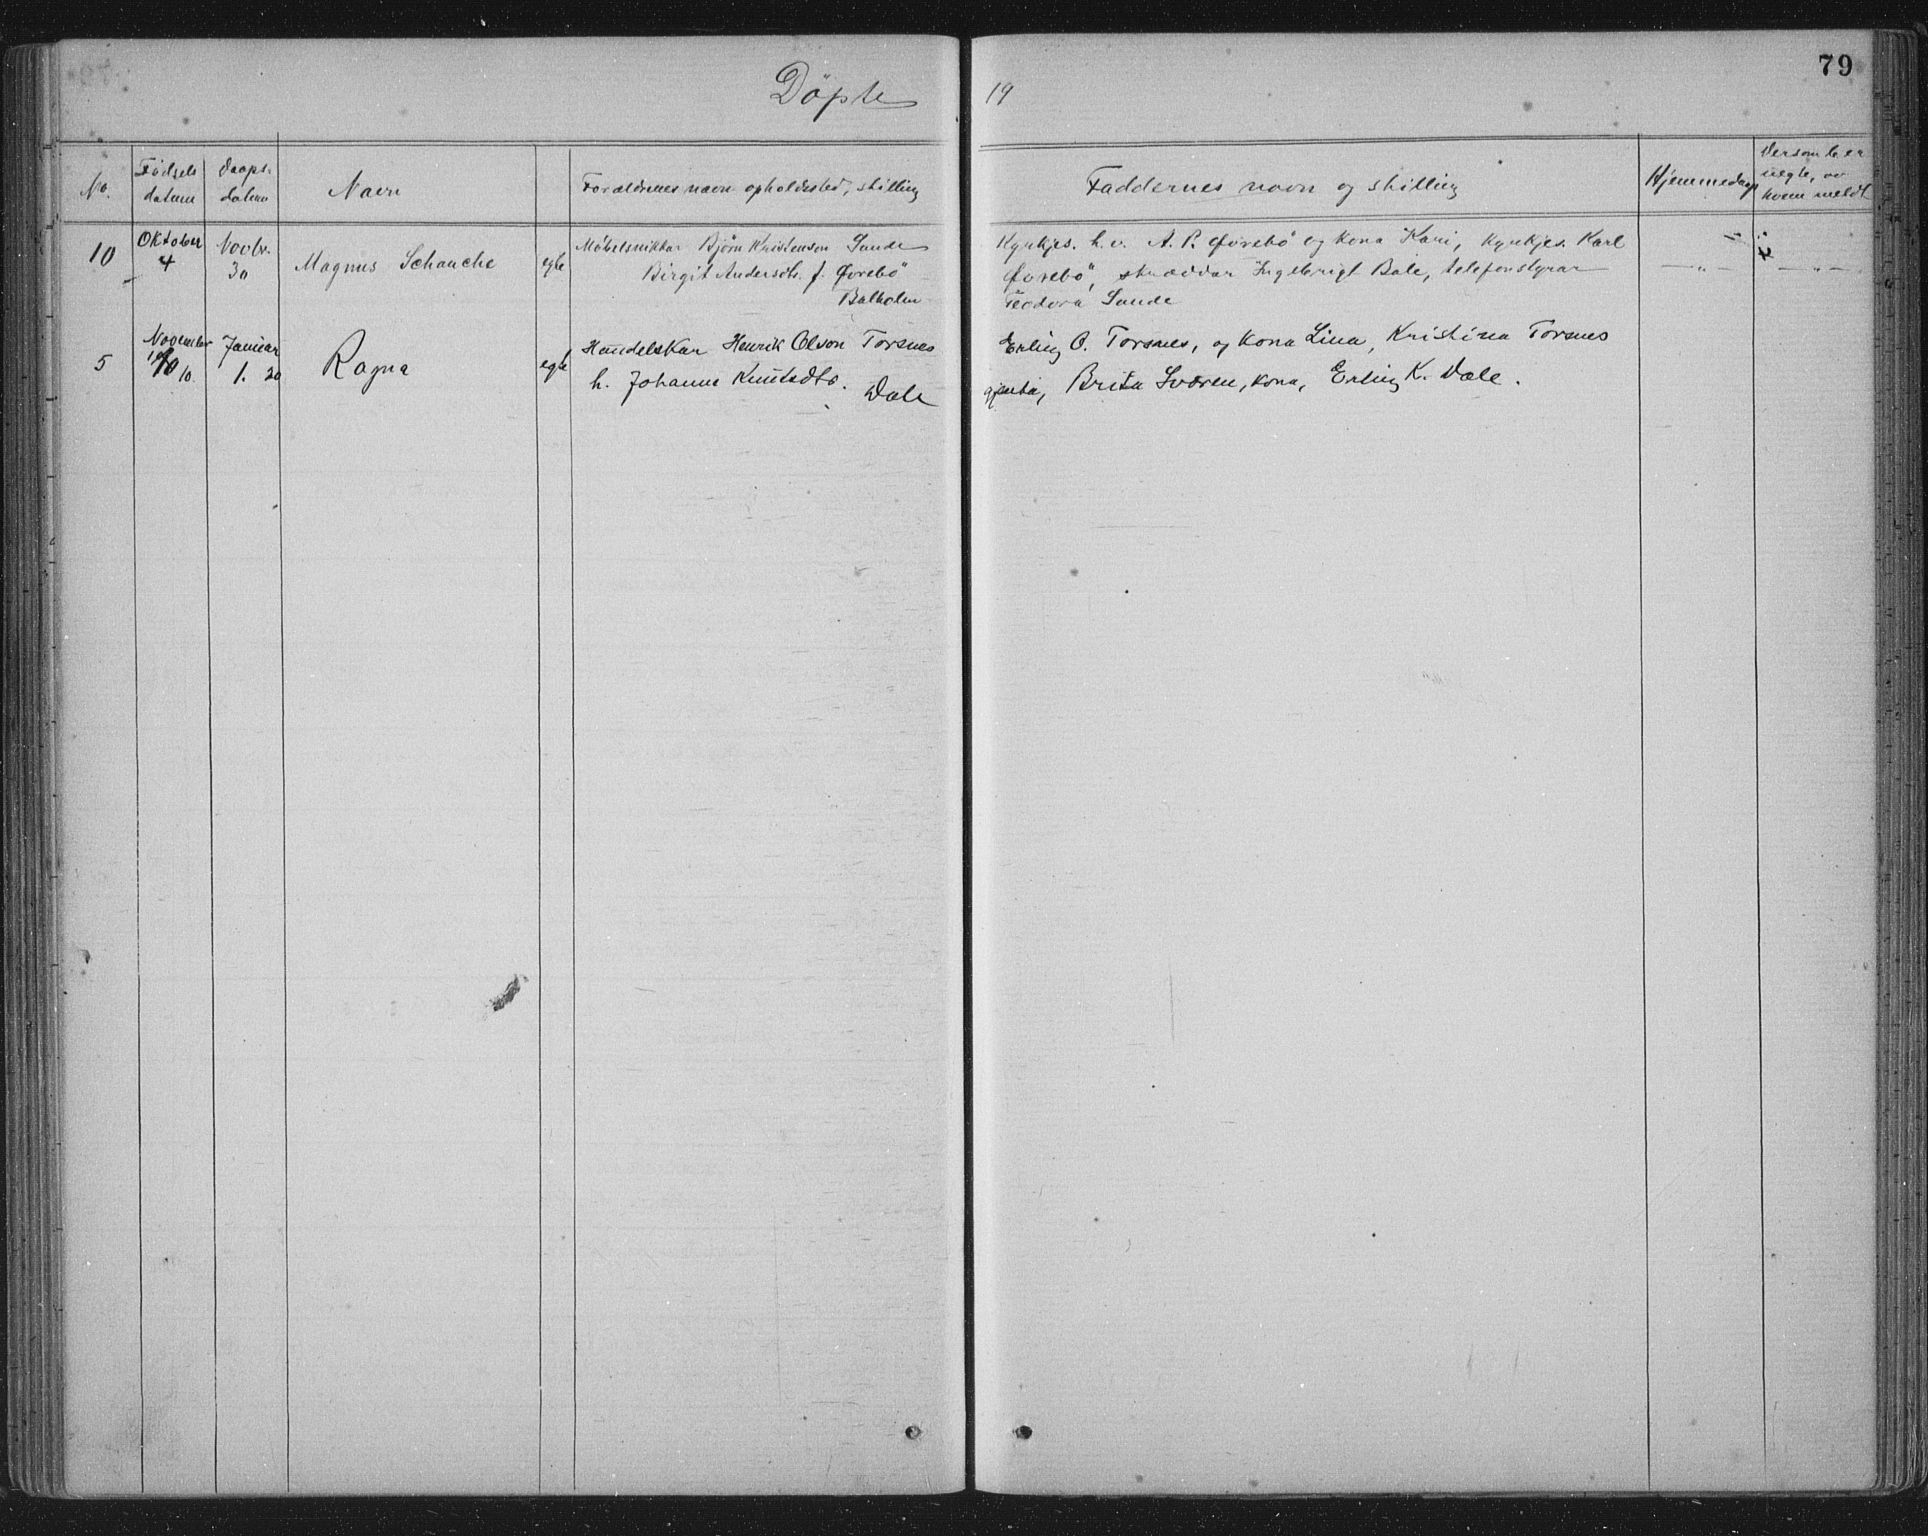 79
Döpte 19
No. Födsels datum Daaps- datum Navn Foraldrenes navn opholdssted, stilling Faddernes navn og stilling Hjemmedaap Dersom be er uegte, av hvem meldt
10 Oktober 4 Novbr. 30 Magnus Schanche egte Möbelsnikkar Bjørn Kristenson Sunde
Birgit Andersdtr. f. Øvrebö
Balholm
Kyrkjes. h. v. A. P. Øvrebö og kona Kari, Kyrkjes. Karl
Øvrebö, skræddar Ingebrigt Bale, telefonstyrar
Teodora Sunde
5 November 10 Januar 1. 20 Ragna egte Handelskar Henrik Olson Torsnes
h. Johanne Knutsdtr. Dale
Erling O. Torsnes, og kona Lina, Kristina Torsnes
gjenta, Brita Sværen, kona, Erling K. Dale.